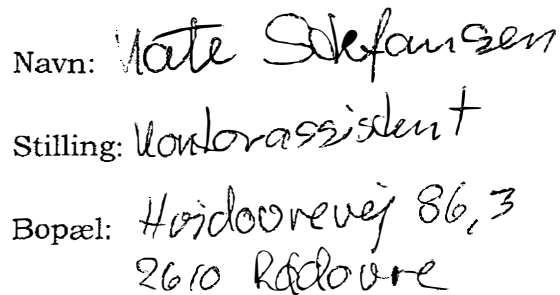 Navn: Kate Stefansen
Stilling: Kontorassistent
Bopæl: Hvidovrevej 86, 3
2610 Rødovre